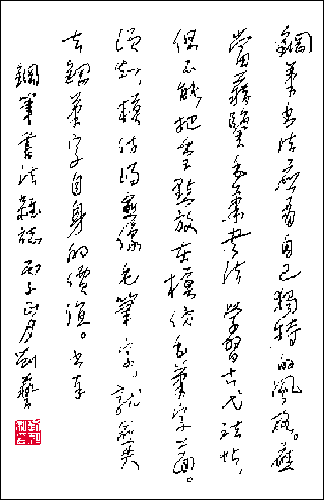 鋼筆書法應有自己獨特的風格。應
當藉鑒毛筆書法，學習古代法帖，
但不能把點放在模仿毛筆字上面。
須知，模仿得愈像毛筆字，就愈失
去鋼筆字自身的價值。書奉
鋼筆書法雜誌 丙子正月劉藝